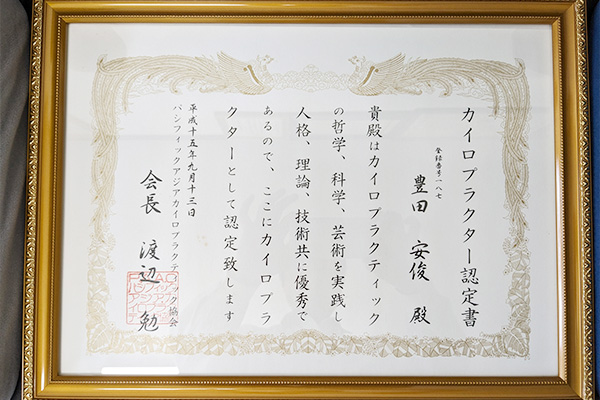 カイロプラクター認定書
登録番号一八七
豊田 安俊 殿
貴殿はカイロプラクティック
の哲学、科学、芸術を実践し
人格、理論、技術共に優秀で
あるので、ここにカイロプラ
クターとして認定致します
平成十五年九月十三日
パシフィックアジアカイロプラクティック協会
会長 渡辺 勉